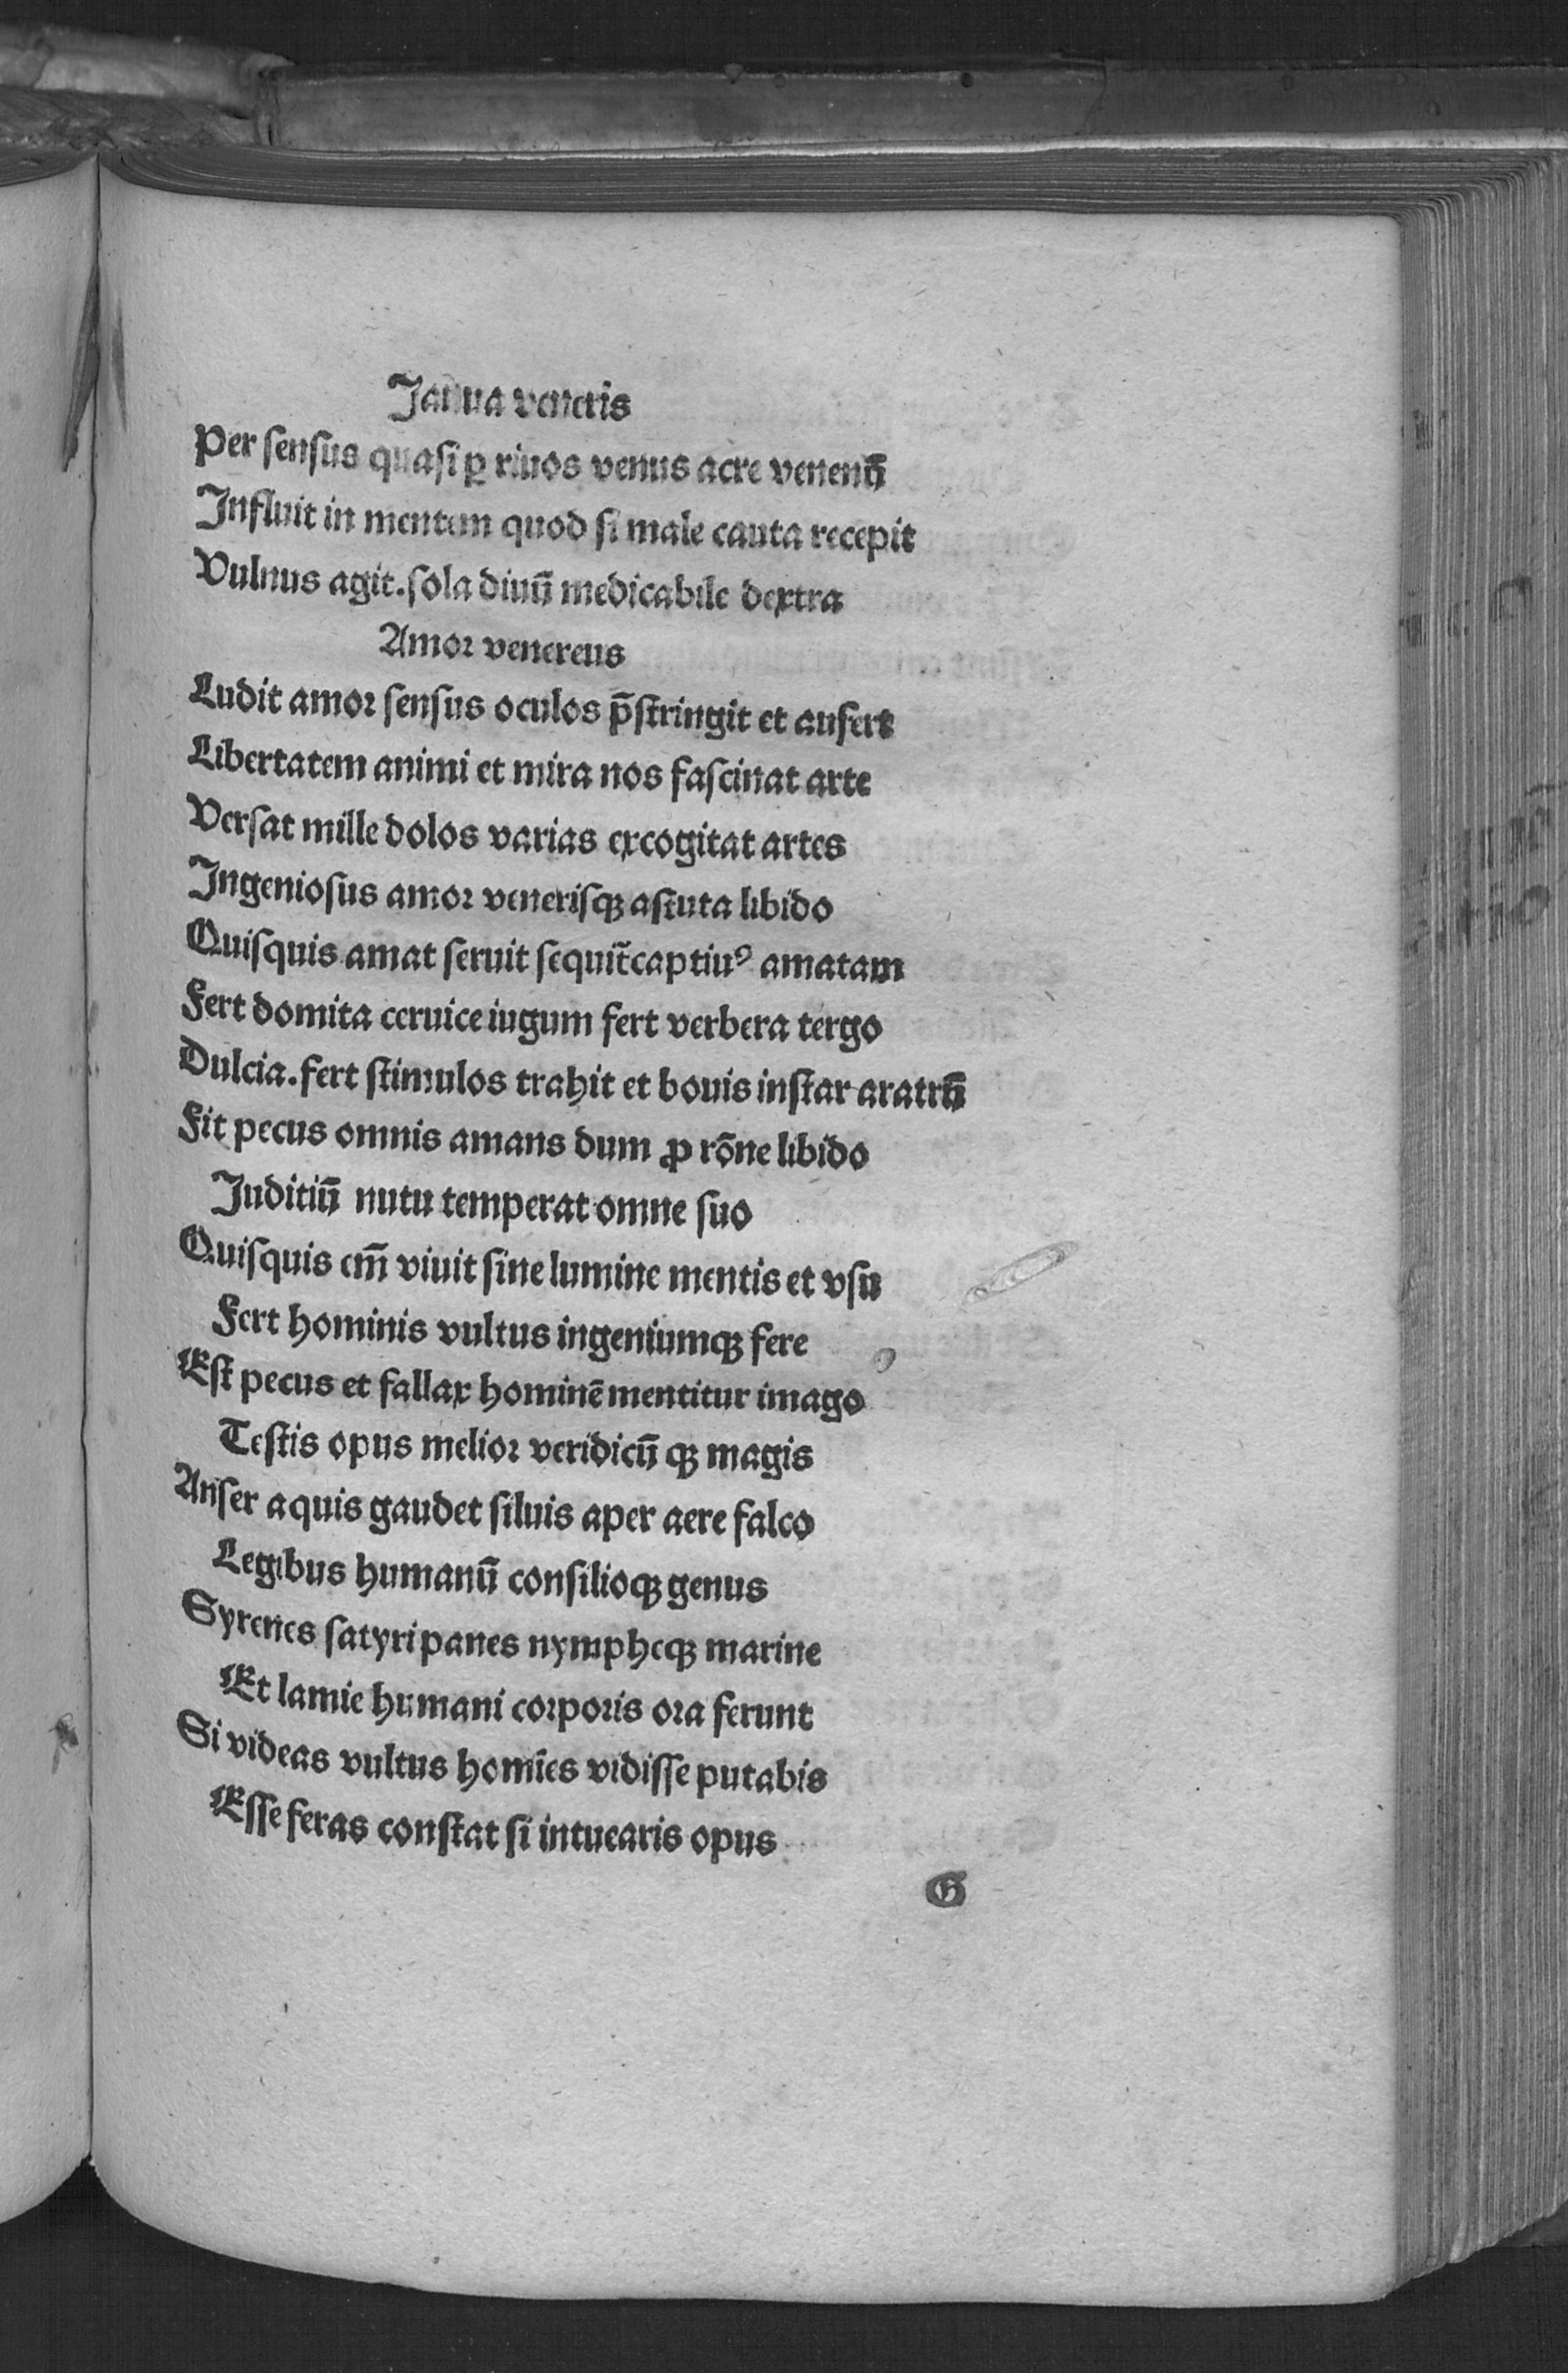 Janua veneris
Per sensus quasi ꝑ riuos venus acre venenū
Influit in mentem quod si male cauta recepit
Vulnus agit. sola diuū medicabile dextra
Amor venereus
Ludit amor sensus oculos p̄stringit et aufert
Libertatem animi et mira nos fascinat arte
Versat mille dolos varias excogitat artes
Ingeniosus amor venerisqꝫ astuta libido
Quisquis amat seruit sequit̄ captiuꝰ amatam
Fert domita ceruice iugum fert verbera tergo
Dulcia. fert stimulos trahit et bouis instar aratrū
Fit pecus omnis amans dum ꝓ rōne libido
Juditiū nutu temperat omne suo
Quisquis em̄ viuit sine lumine mentis et vsu
Fert hominis vultus ingeniumqꝫ fere
Est pecus et fallax hominē mentitur imago
Testis opus melior veridicū qꝫ magis
Anser aquis gaudet siluis aper aere falco
Legibus humanū consilioqꝫ genus
Syrenes satyri panes nympheqꝫ marine
Et lamie humani corporis ora ferunt
Si videas vultus homīes vidisse putabis
Esse feras constat si intuearis opus
G